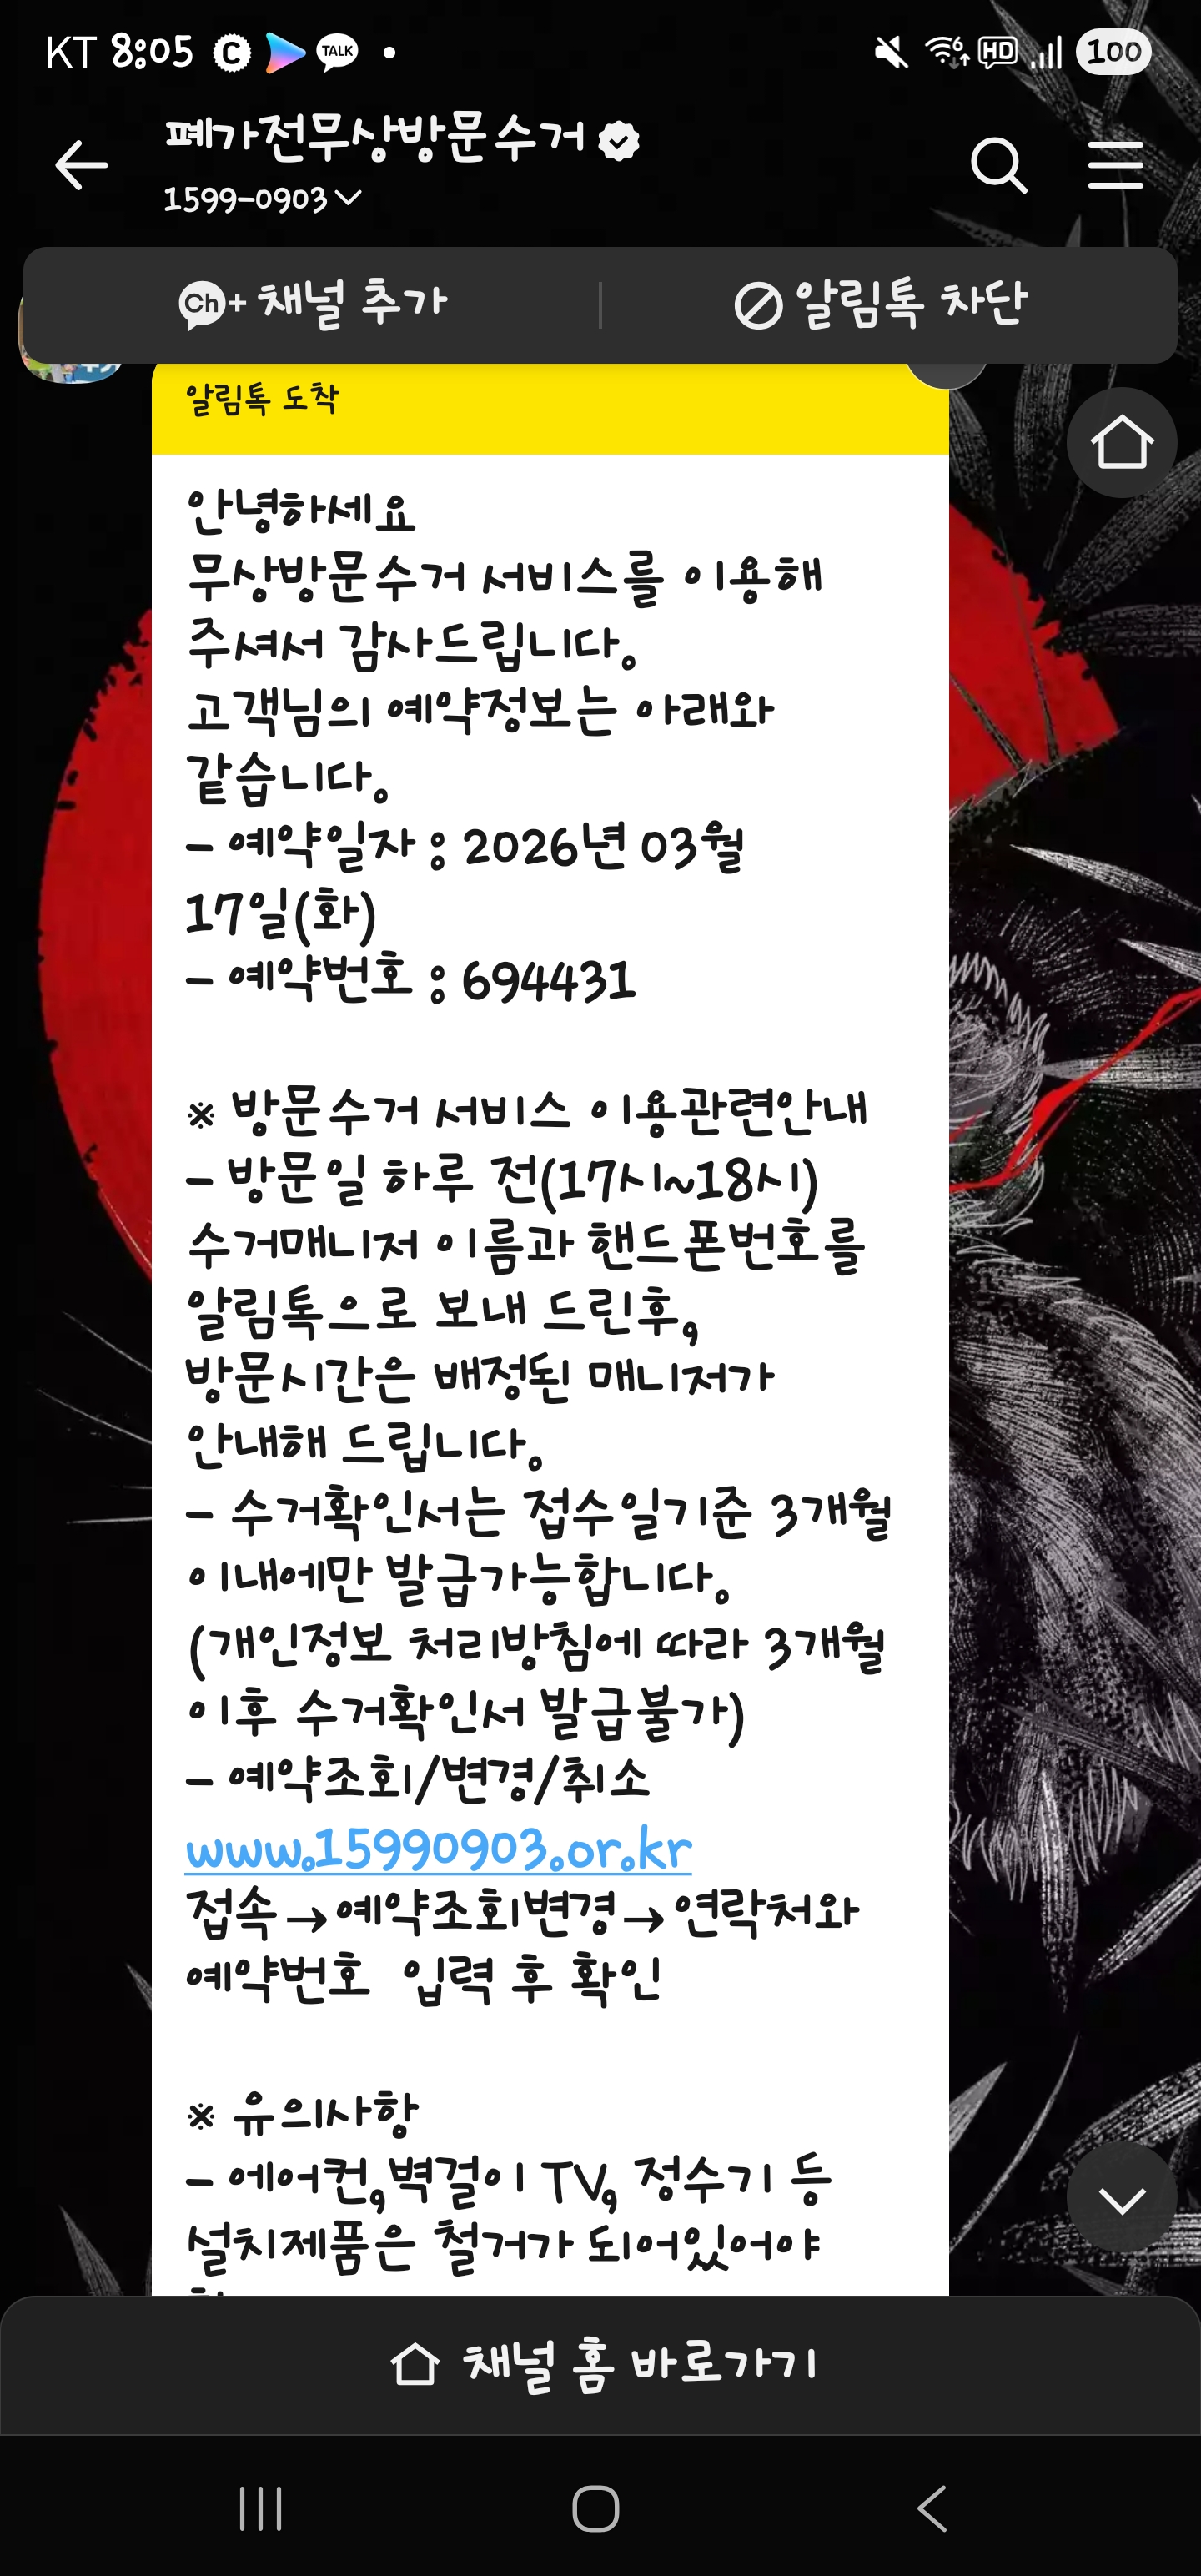 KT 8:05 C TALK HD 100
폐가전무상방문수거
1599-0903
Ch+ 채널 추가
알림톡 차단
알림톡 도착
안녕하세요
무상방문수거 서비스를 이용해
주셔서 감사드립니다.
고객님의 예약정보는 아래와
같습니다.
- 예약일자 : 2026년 03월
17일(화)
- 예약번호 : 694431
※ 방문수거 서비스 이용관련안내
- 방문일 하루 전(17시~18시)
수거매니저 이름과 핸드폰번호를
알림톡으로 보내 드린후,
방문시간은 배정된 매니저가
안내해 드립니다.
- 수거확인서는 접수일기준 3개월
이내에만 발급가능합니다.
(개인정보 처리방침에 따라 3개월
이후 수거확인서 발급불가)
- 예약조회/변경/취소
www.15990903.or.kr
접속→예약조회변경→연락처와
예약번호  입력 후 확인
※ 유의사항
- 에어컨,벽걸이 TV, 정수기 등
설치제품은 철거가 되어있어야
채널 홈 바로가기